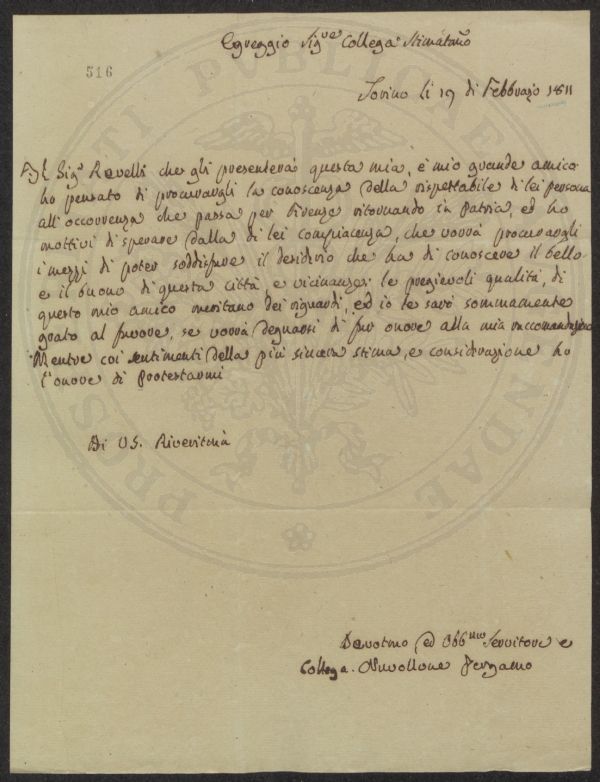 Egreggio Sig.ʳᵉ Collega Stimatmo
516
Torino li 19 di Febbrajo 1811
Il Sig.ʳ Ravelli che gli presenterà questa mia, è mio grande amico
ho pensato di procurargli la conoscenza della rispettabile di lei persona
all'occorrenza che passa per Firenze ritornando in Patria, ed ho
mottivi di sperare dalla di lei compiacenza, che vorrà procurargli
i mezzi di poter soddisfare il desiderio che ha di conoscere il bello
e il buono di questa città, e vicinanze: le pregievoli qualità, di
questo mio amico meritano dei riguardi, ed io le sarò sommamente
grato al favore, se vorrà degnarsi di far onore alla mia raccomandazione
Mentre coi sentimenti della più sincera stima, e considerazione ho
l'onore di Protestarmi
Di V.S. Riveritma
Devotmo ed Obb.ᵐᵒ Servitore e
Collega. Nuvollone Pergamo
PROSPERITATI PUBLICAE AUGENDAE